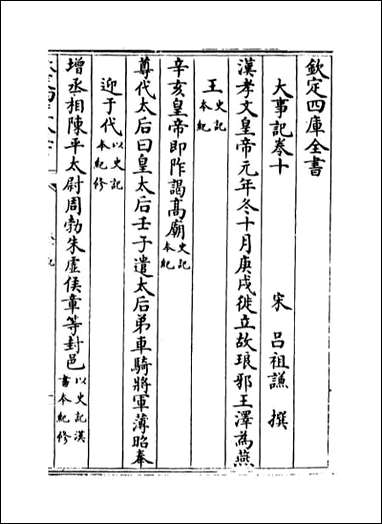 欽定四庫全書
大事記卷十
宋 呂祖謙 撰
漢孝文皇帝元年冬十月庚戌徙立故琅邪王澤為燕
王史記本紀
辛亥皇帝即阼謁高廟史記本紀
尊代太后曰皇太后壬子遣太后弟車騎將軍薄昭奉
迎于代以史記本紀修
增丞相陳平太尉周勃朱虛侯章等封邑以史記漢書本紀修